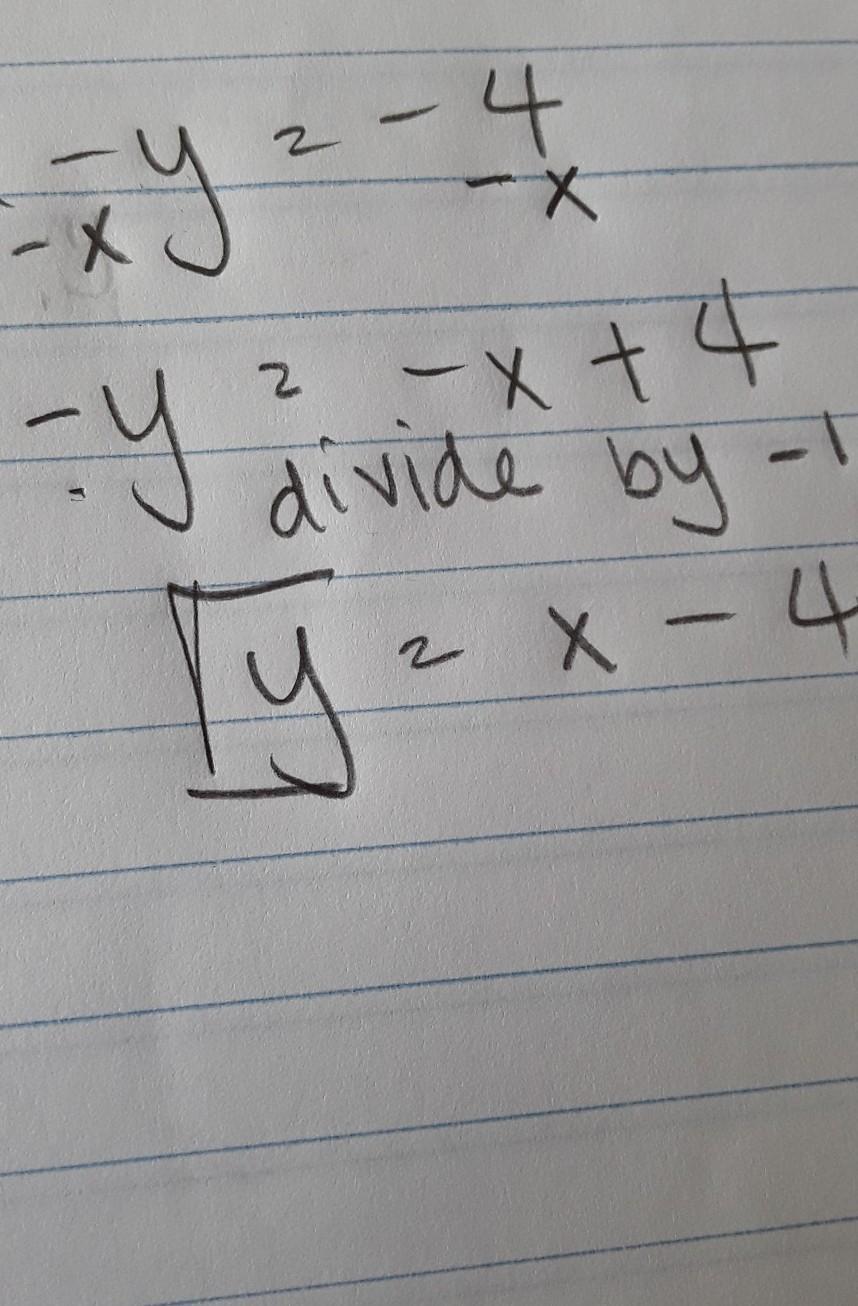 -y = -4
-x -x
-y = -x + 4
divide by -1
y = x - 4